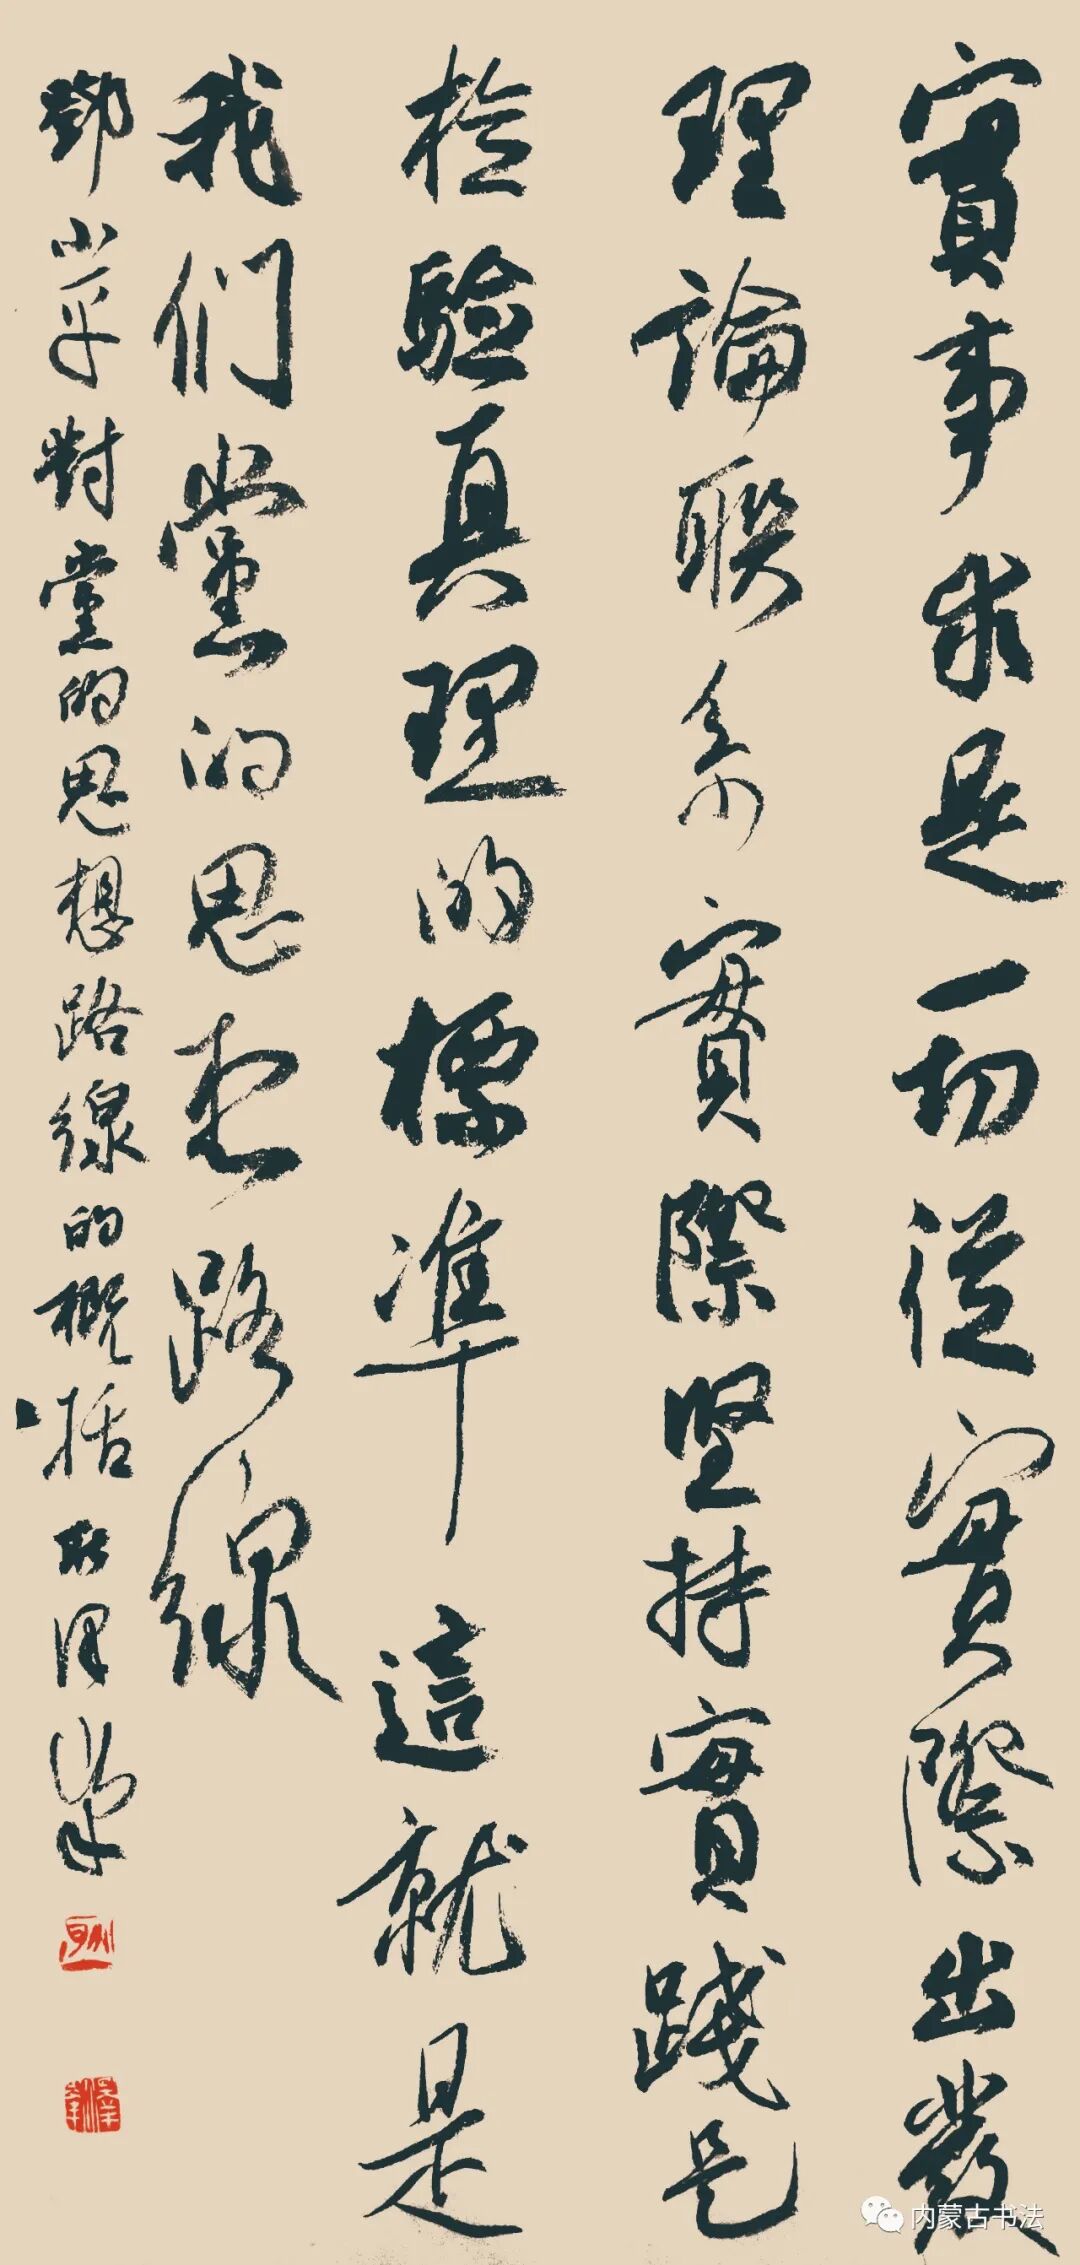 實事求是一切從實際出發
理論聯系實際坚持實踐是
檢驗真理的標準這就是
我们黨的思想路線
鄧小平對黨的思想路線的概括
内蒙古书法